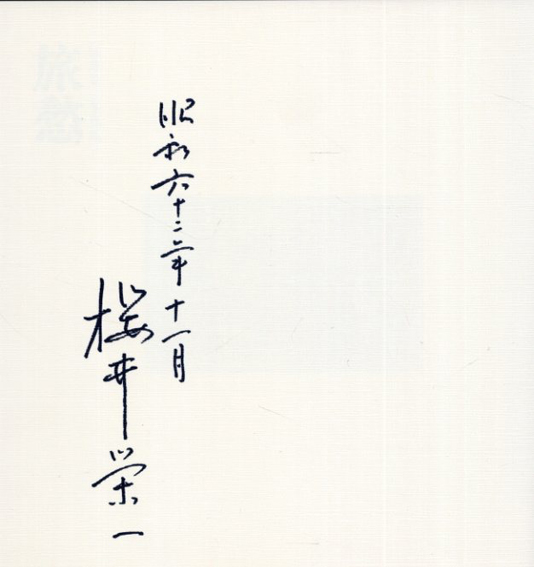 昭和六十二年十一月
桜井栄一